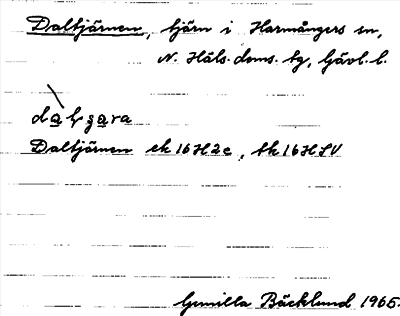 Daltjärnen, tjärn i Harmångers sn,
N. Häls. doms. tg, Gävl. l.
Daltjärnen ek 16H2c, tk 16H SV
Gunilla Bäcklund 1965.